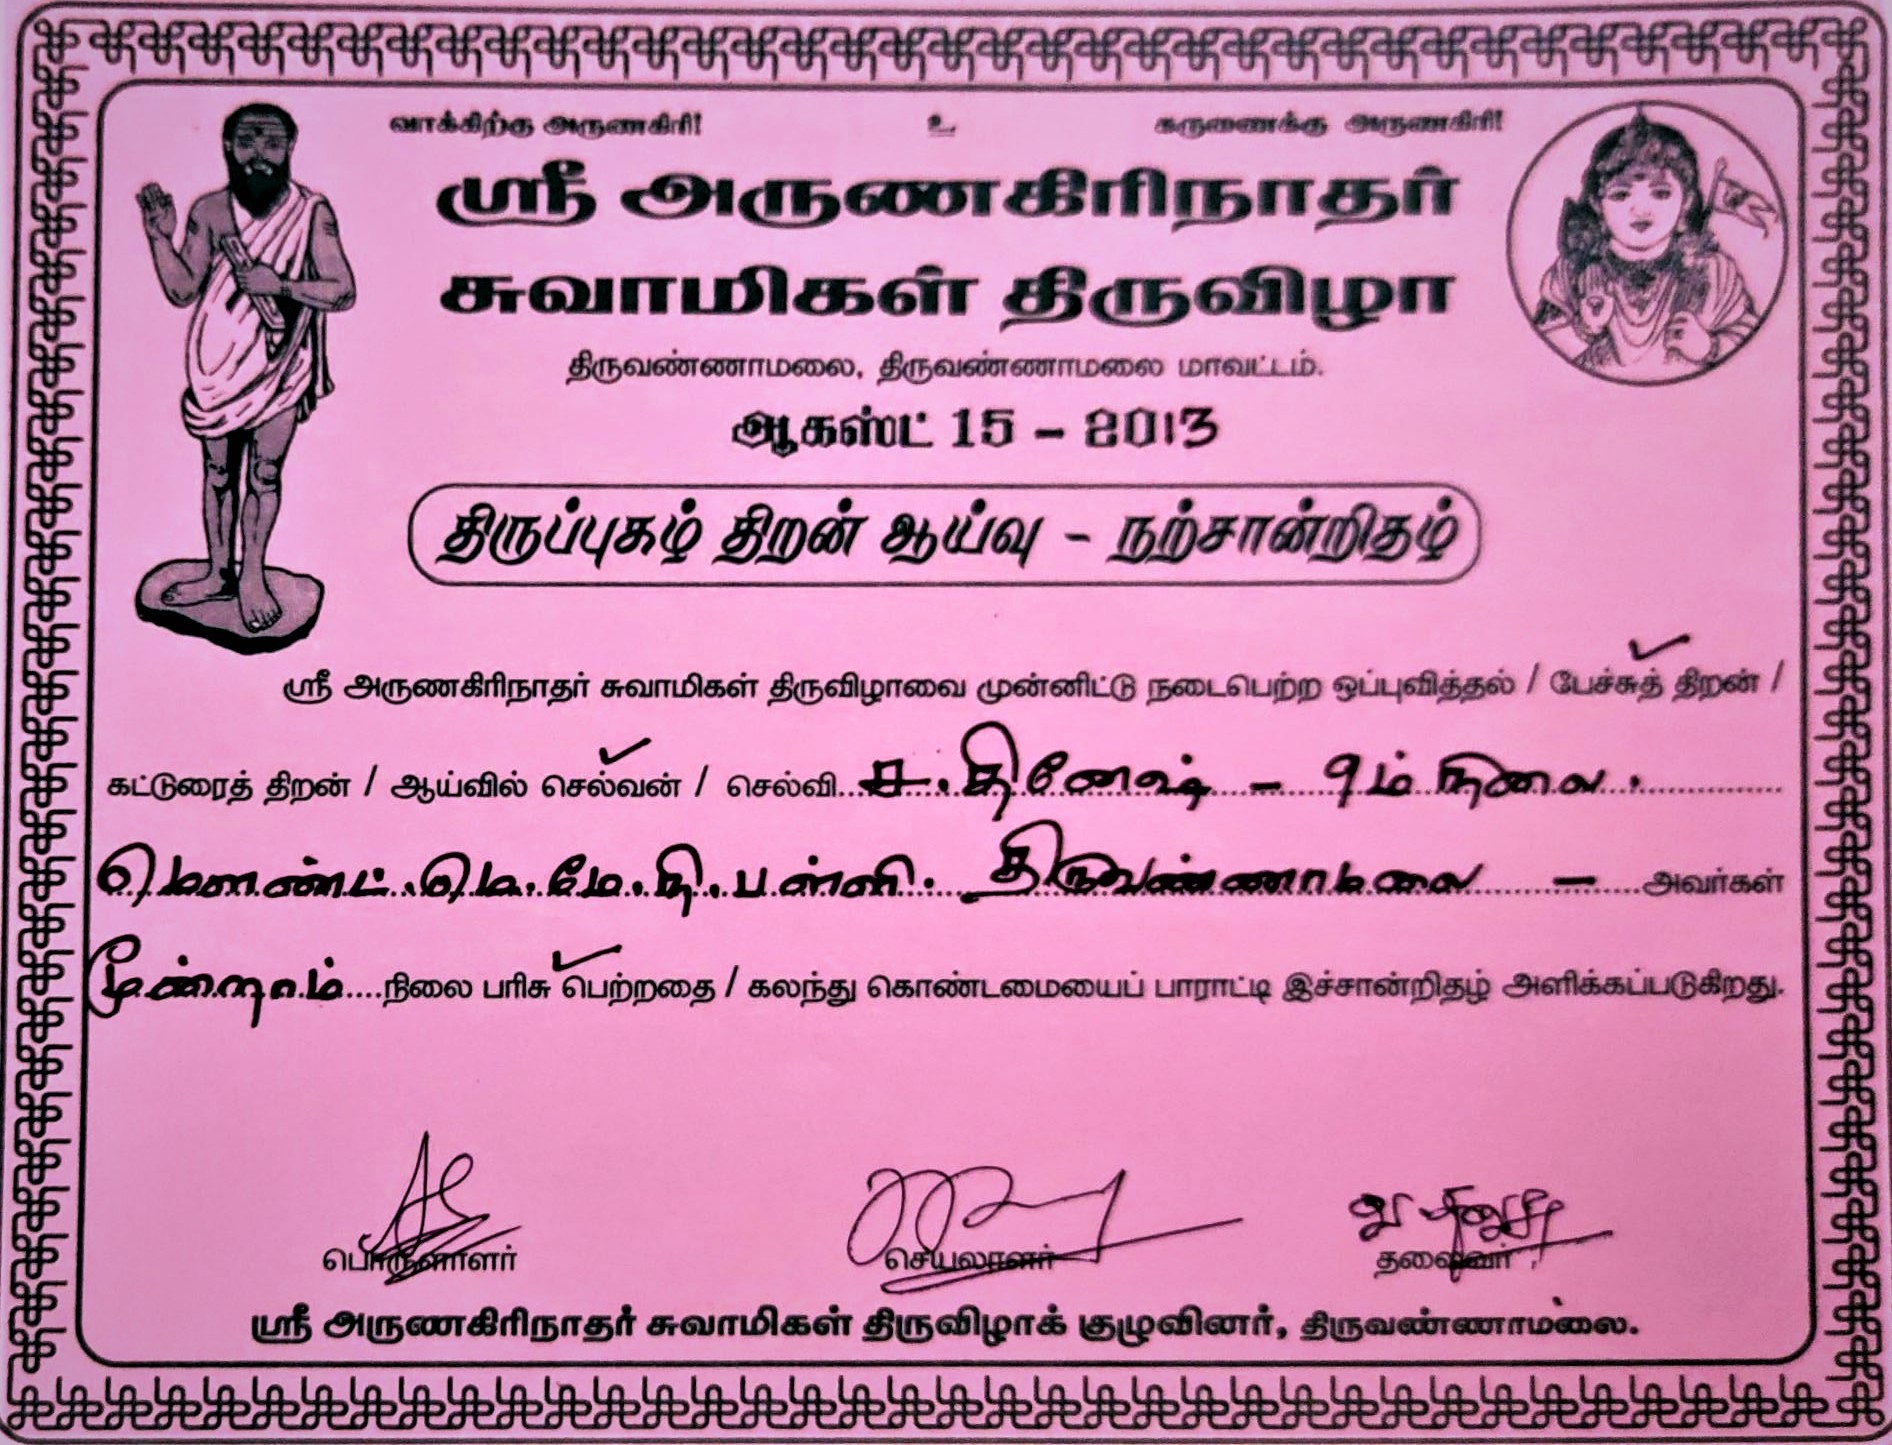 வாக்கிற்கு அருணகிரி! உ கருணைக்கு அருணகிரி!
ஸ்ரீ அருணகிரிநாதர்
சுவாமிகள் திருவிழா
திருவண்ணாமலை, திருவண்ணாமலை மாவட்டம்.
ஆகஸ்ட் 15 - 2013
திருப்புகழ் திறன் ஆய்வு - நற்சான்றிதழ்
ஸ்ரீ அருணகிரிநாதர் சுவாமிகள் திருவிழாவை முன்னிட்டு நடைபெற்ற ஒப்புவித்தல் / பேச்சுத் திறன் /
கட்டுரைத் திறன் / ஆய்வில் செல்வன் / செல்வி ச. தினேஷ் - 9ம் நிலை.
மௌண்ட். மெ. மே. நி. பள்ளி. திருவண்ணாமலை - அவர்கள்
மூன்றாம் நிலை பரிசு பெற்றதை / கலந்து கொண்டமையைப் பாராட்டி இச்சான்றிதழ் அளிக்கப்படுகிறது.
பொருளாளர் செயலாளர் தலைவர்
ஸ்ரீ அருணகிரிநாதர் சுவாமிகள் திருவிழாக் குழுவினர், திருவண்ணாமலை.